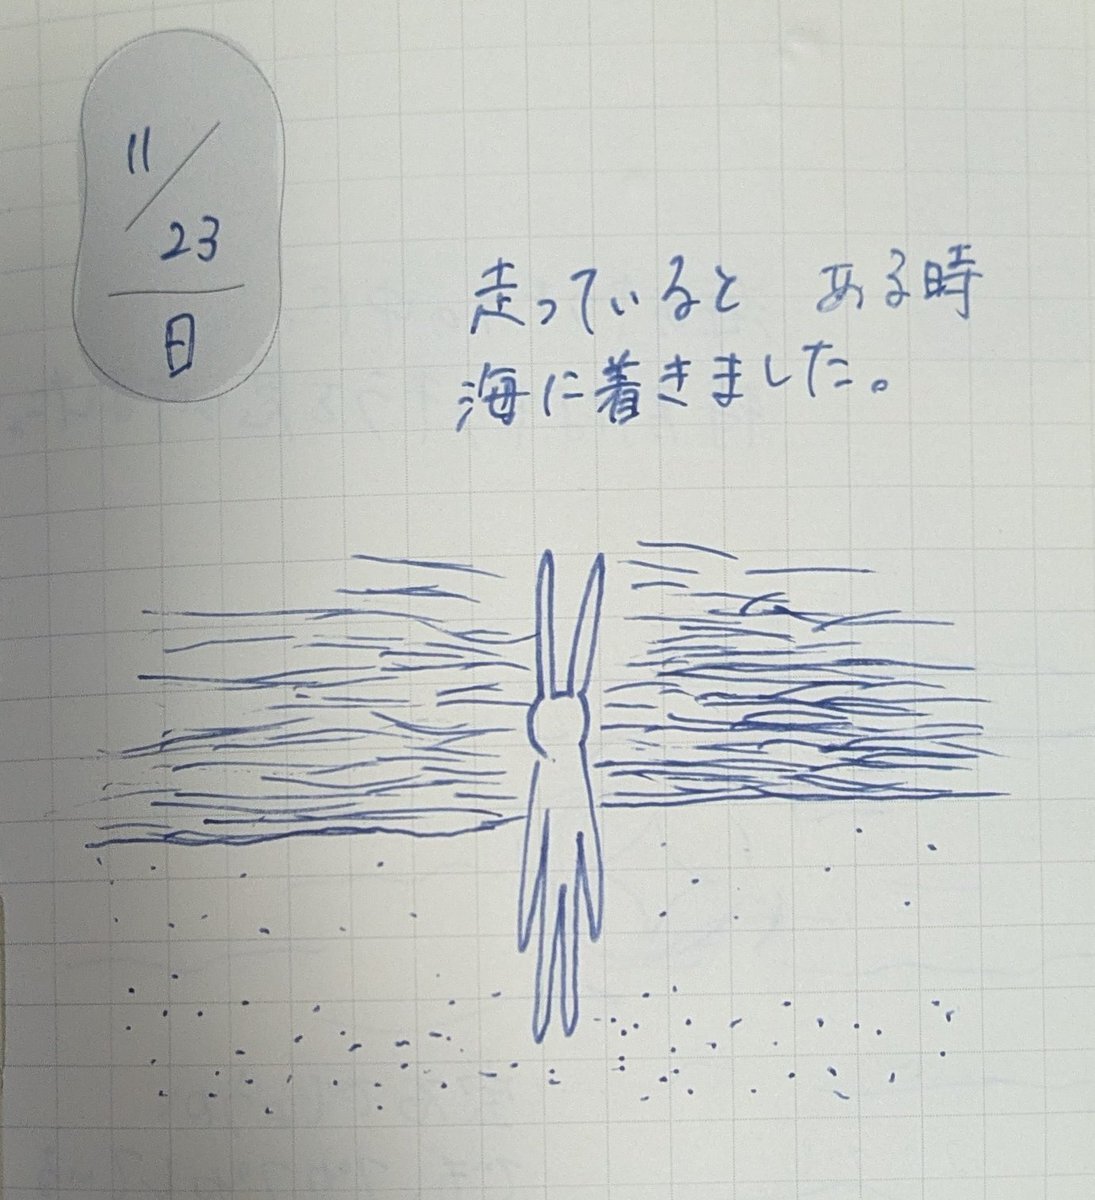 11/23
日
走っていると ある時
海に着きました。